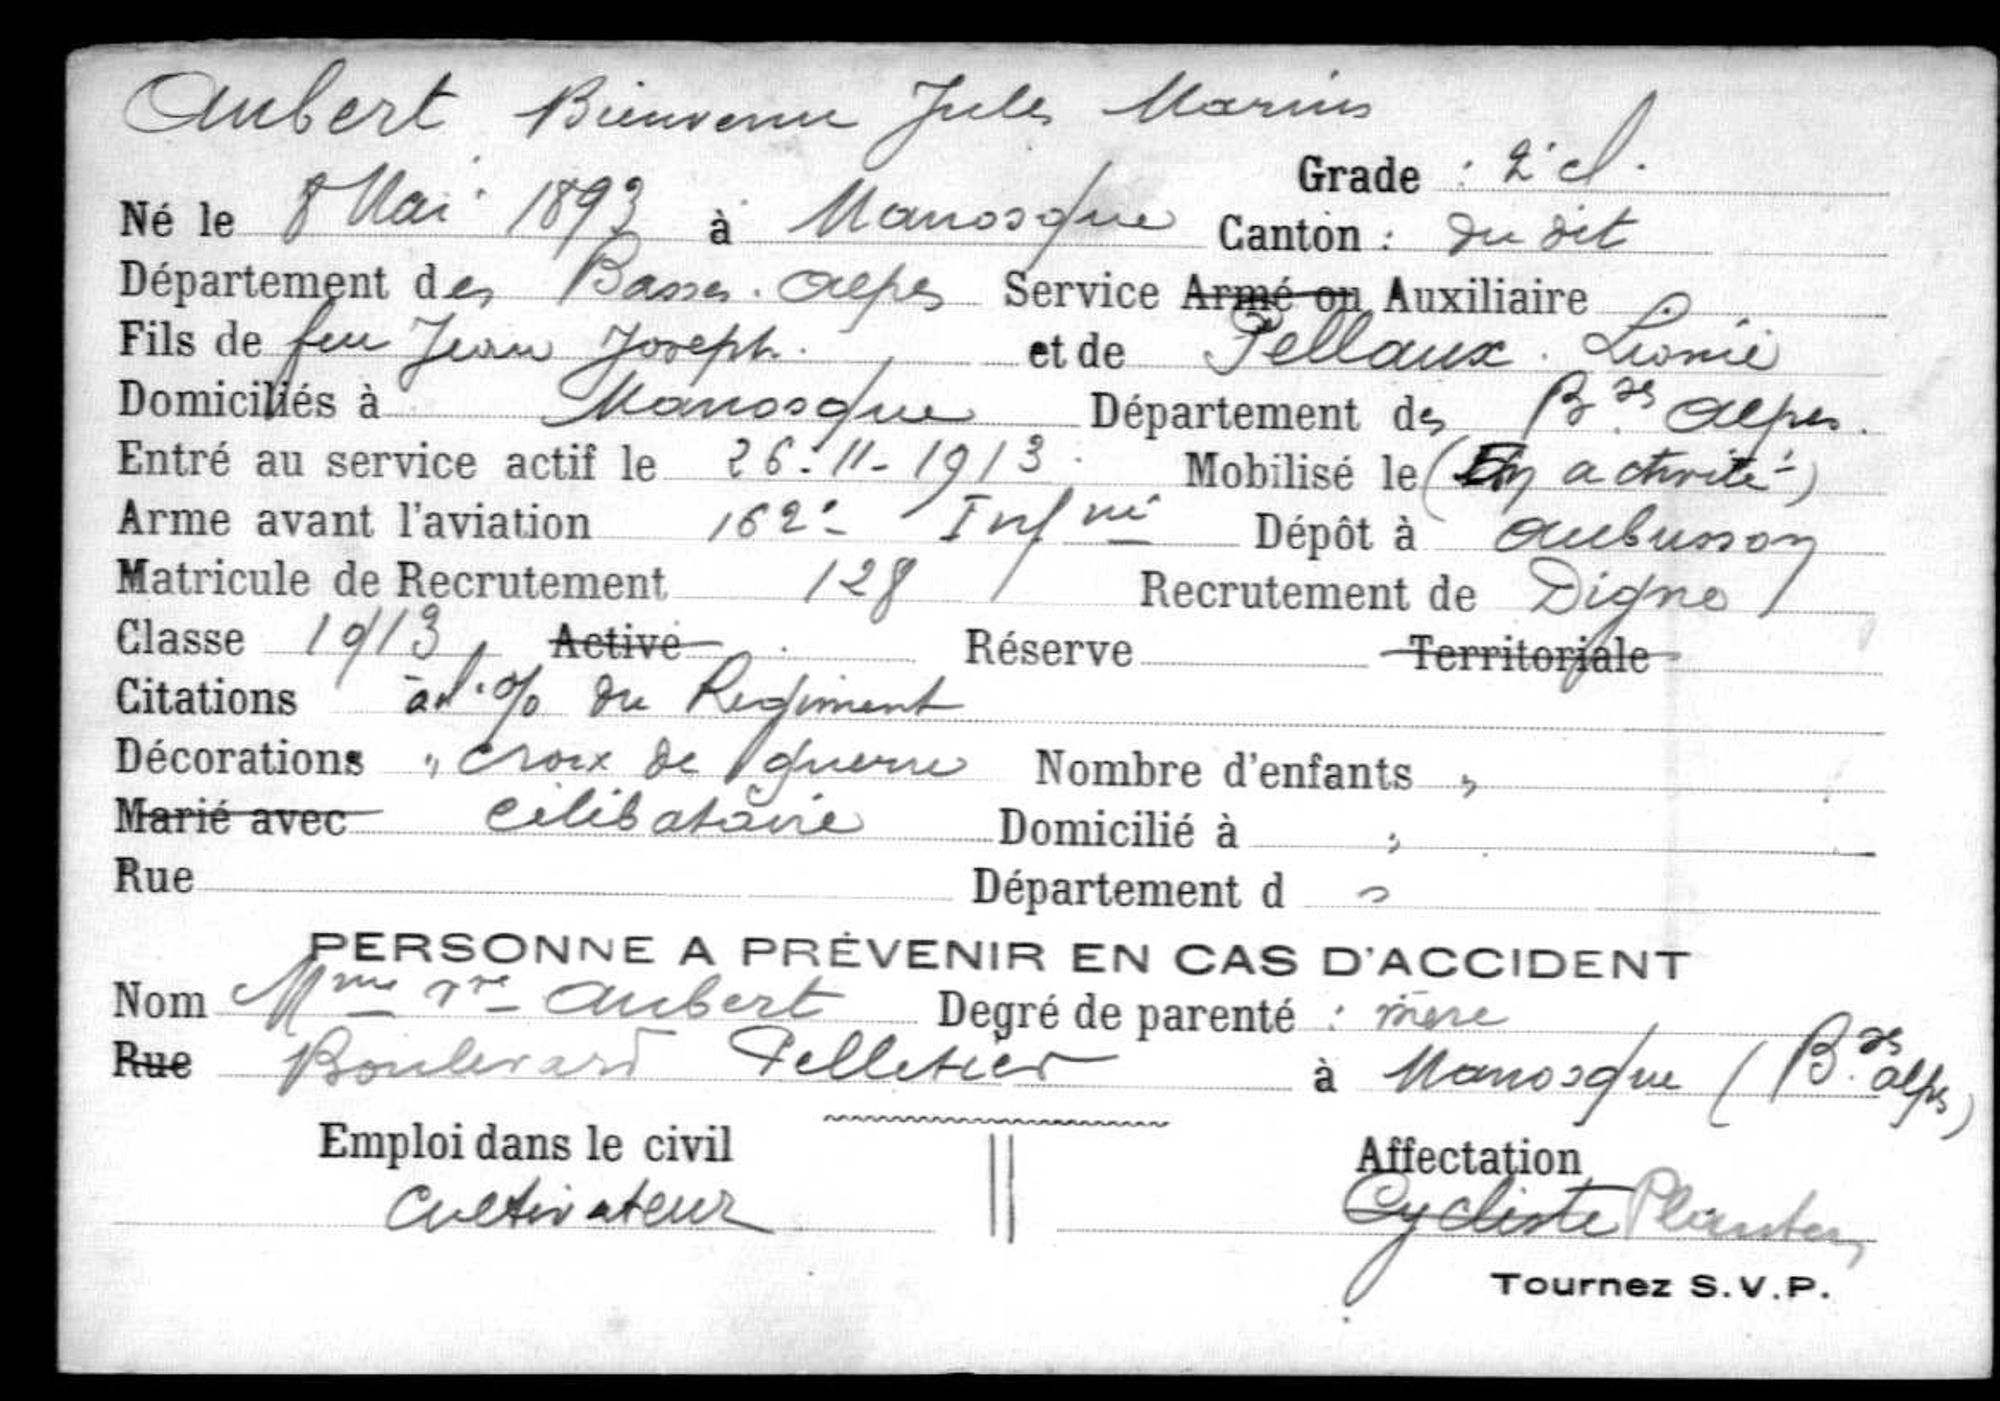 Aubert Bienvenu Jules Marius
Grade : 2e cl.
Né le 8 Mai 1893 à Manosque Canton : du dit
Département des Basses-Alpes Service Armé ou Auxiliaire
Fils de feu Jean Joseph. et de Pellaux Léonie
Domiciliés à Manosque Département des Bses Alpes.
Entré au service actif le 26-11-1913 Mobilisé le (En activité)
Arme avant l'aviation 162e Infrie Dépôt à Aubusson
Matricule de Recrutement 128 Recrutement de Digne
Classe 1913 Active Réserve Territoriale
Citations à l'o/ du Régiment
Décorations " croix de guerre Nombre d'enfants "
Marié avec célibataire Domicilié à "
Rue Département d "
PERSONNE A PRÉVENIR EN CAS D'ACCIDENT
Nom Mme Vve Aubert Degré de parenté : mère
Rue Boulevard Pelletier à Manosque (Bses Alpes)
Emploi dans le civil Affectation
Cultivateur Cycliste Planton
Tournez S.V.P.